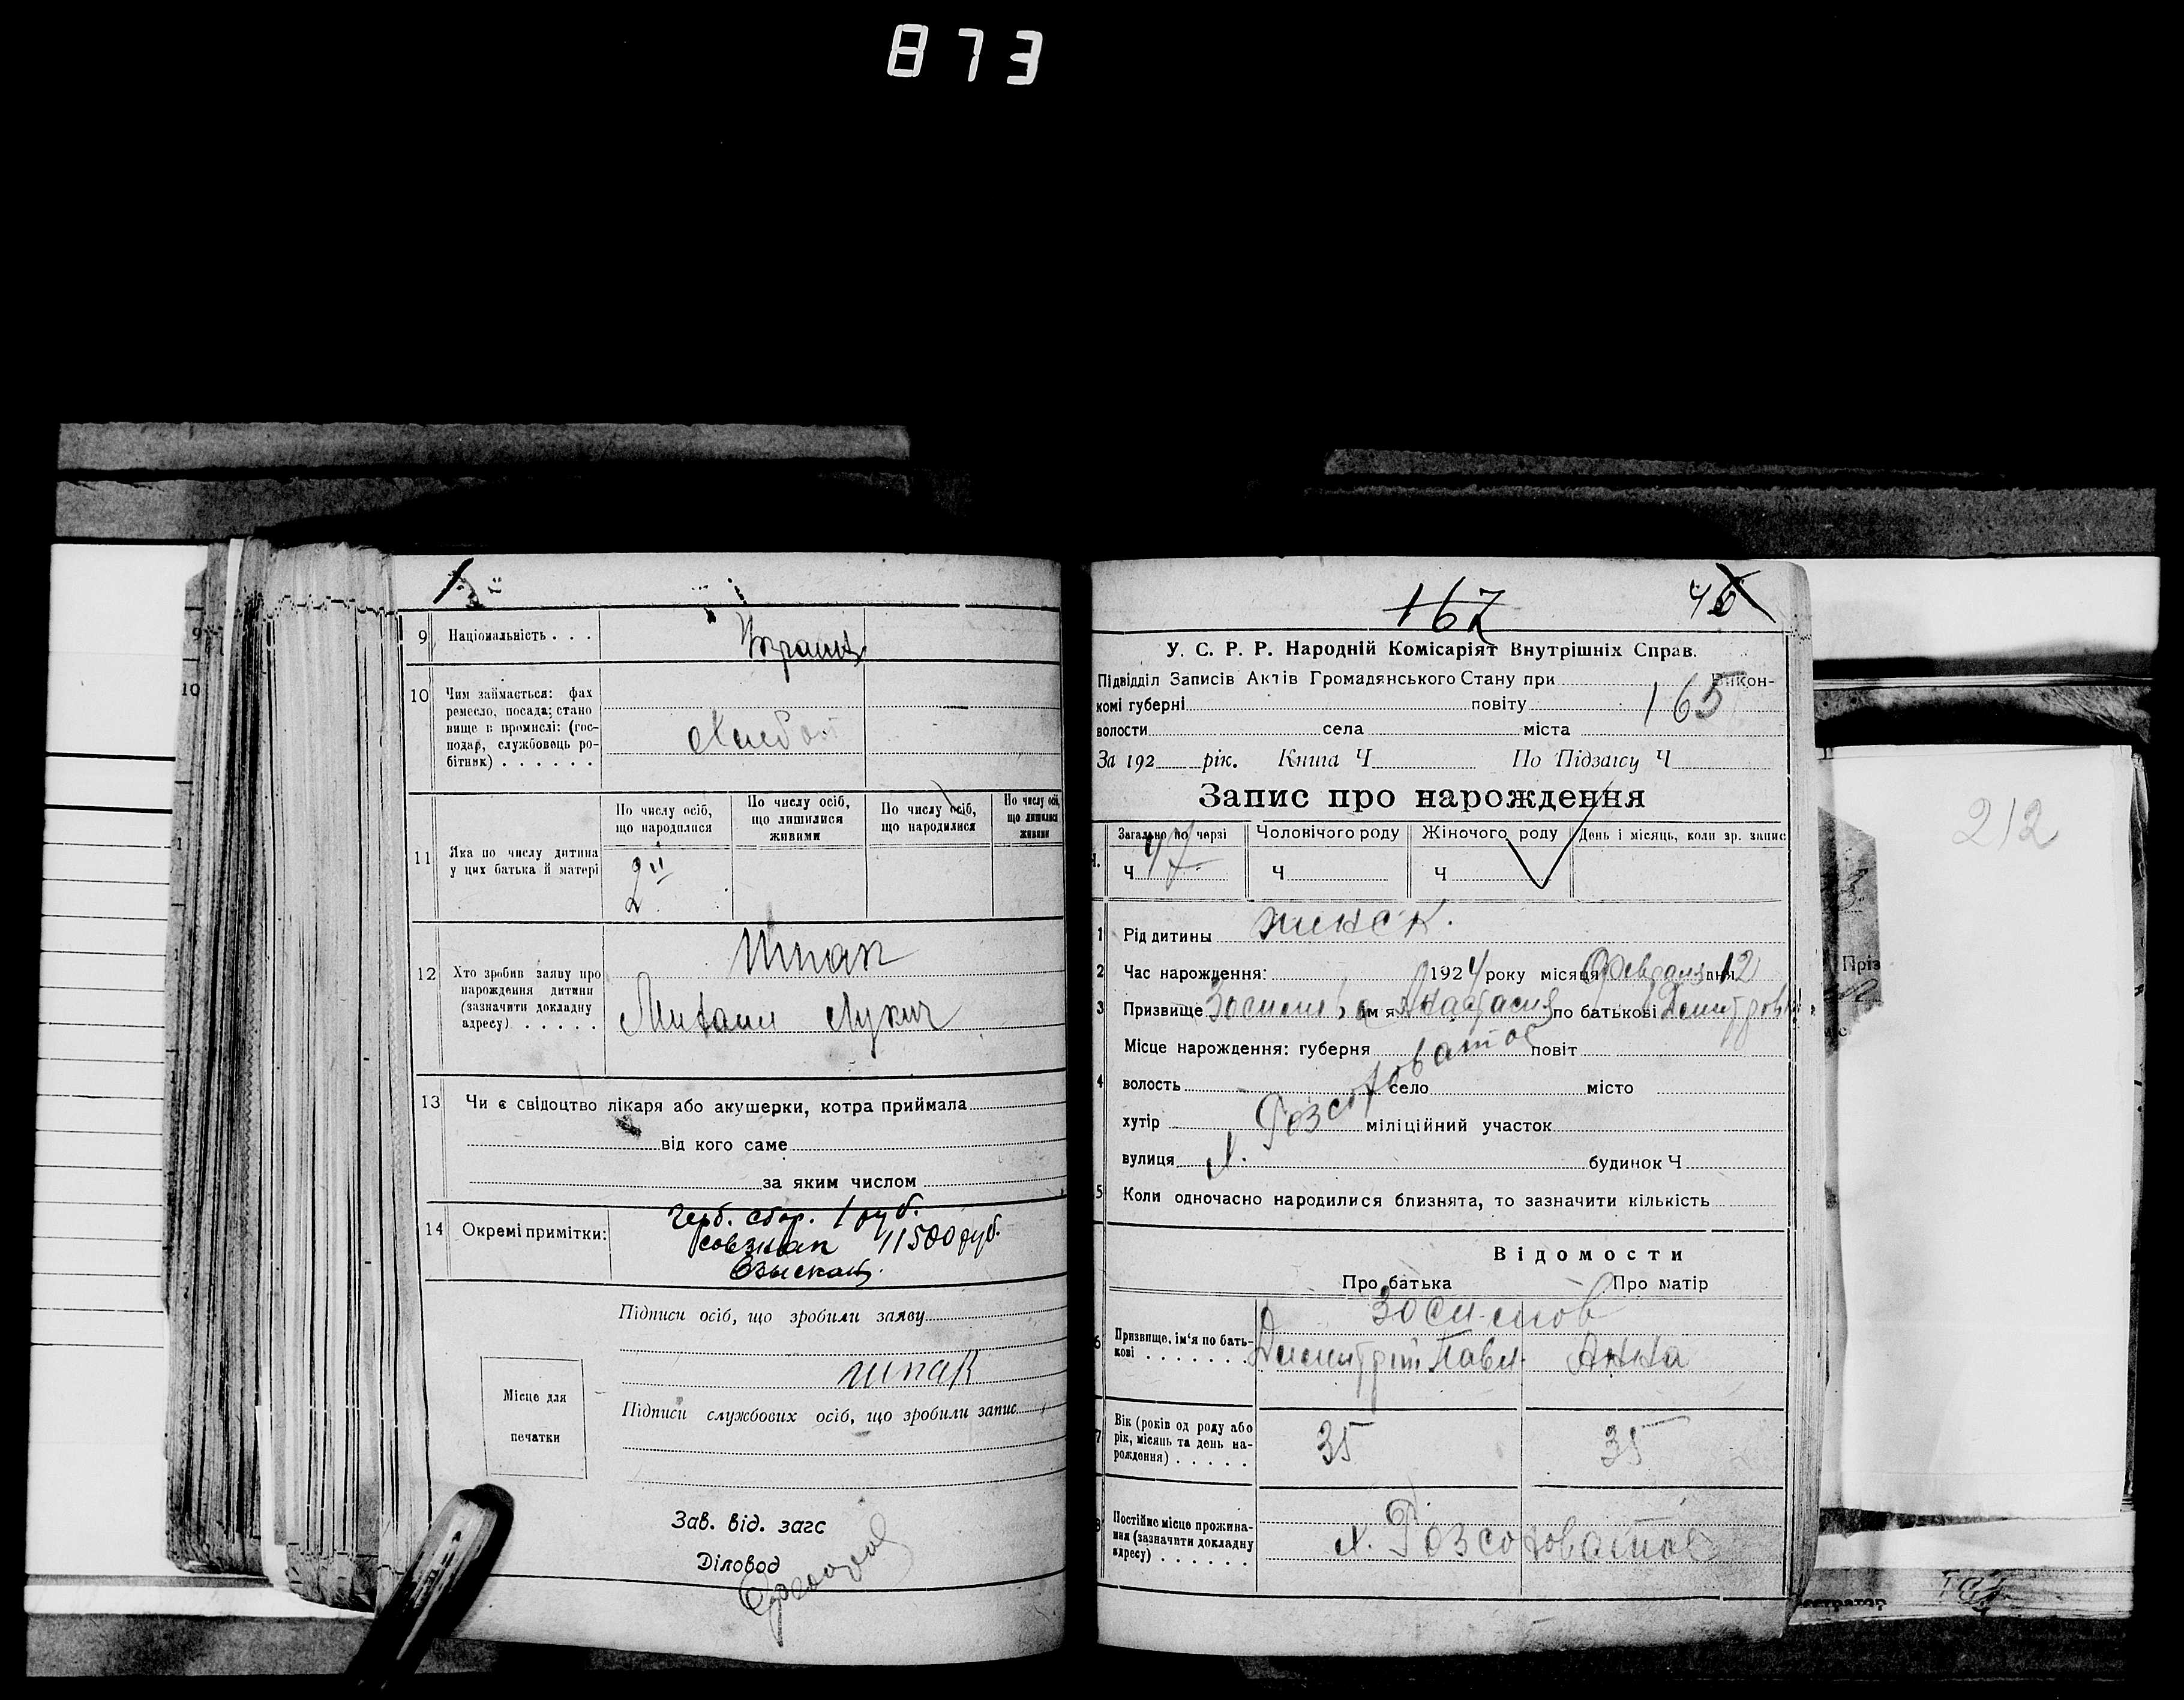 873
9 Національність . . .
Украинц
10 Чим займається: фах
ремесло, посада; стано
вище в промислі: (гос-
подар, службовець ро-
бітник) . . . . . .
Хлебоп
11 Яка по числу дитина
у цих батька й матері
По числу осіб,
що народилися
По числу осіб,
що лишилися
живими
По числу осіб,
що народилися
По числу осіб,
що лишилися
живими
2й
12 Хто зробив заяву про
народження дитини
(зазначити докладну
адресу) . . . . .
Шпак
Михаил Лукич
13 Чи є свідоцтво лікаря або акушерки, котра приймала
від кого саме
за яким числом
14 Окремі примітки:
Герб. сбор. 1 руб.
совзнак 11500 руб.
Взыскан
Підписи осіб, що зробили заяву
шпак
Місце для
печатки
Підписи службових осіб, що зробили запис
Зав. від. загс
Діловод
167
У. С. Р. Р. Народній Комісаріят Внутрішніх Справ.
Підвідділ Записів Актів Громадянського Стану при Викон-
комі губерні повіту 165
волости села міста
За 192 рік. Книга Ч По Підзагсу Ч
Запис про народження
Загально по черзі Чоловічого роду Жіночого роду День і місяць, коли зр. запис
Ч 47 Ч Ч
1 Рід дитины женск.
2 Час нарождення: 1924 року місяця Февраля дня 12
3 Призвище ім'я Анастасия по батькові
Місце народження: губерня повіт
4 волость село місто
хутір міліційний участок
вулиця будинок Ч
х. Розсоховатое
5 Коли одночасно народилися близнята, то зазначити кількість
Відомости
Про батька Про матір
6 Призвище, ім'я по бать-
кові . . . . . . .
Зосимов
Димитрий Павл. Анна
7 Вік (років од роду або
рік, місяць та день на-
рождення) . . . . .
35 35
8 Постійне місце прожива-
ння (зазначити докладну
адресу) . . . . . .
х. Розсоховатое
212